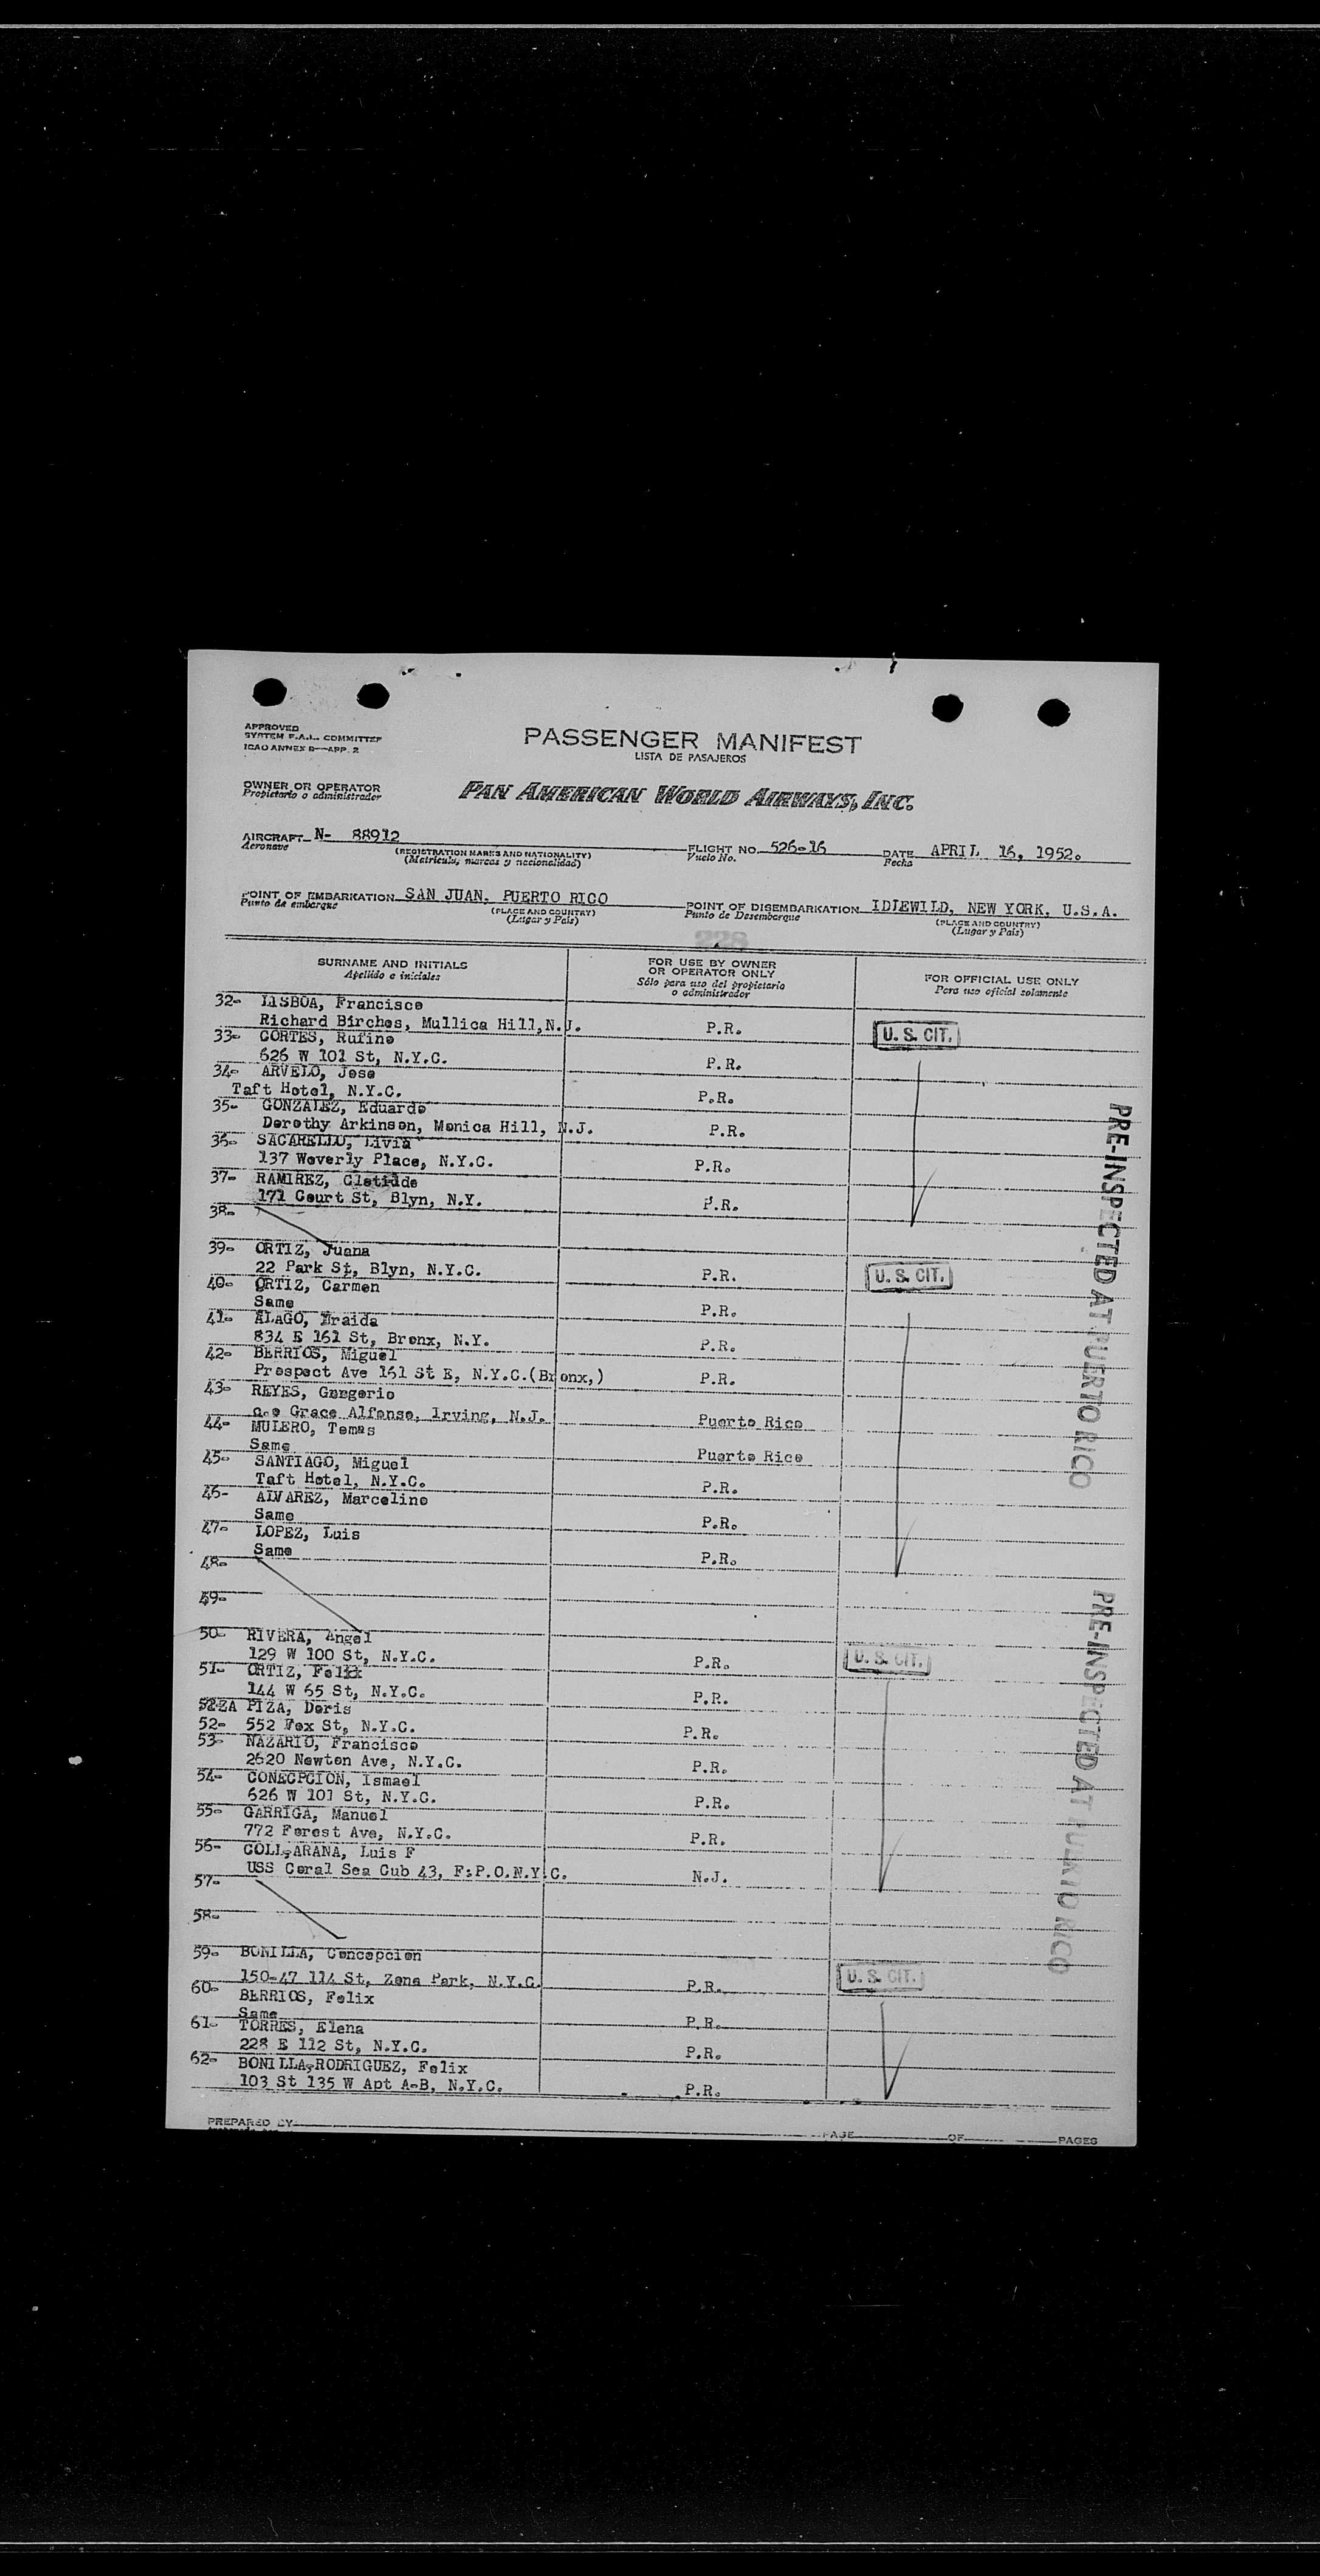 APPROVED
SYSTEM F.A.L. COMMITTEE
ICAO ANNEX 9—APP. 2
PASSENGER MANIFEST
LISTA DE PASAJEROS
OWNER OR OPERATOR
Propietario o administrador
PAN AMERICAN WORLD AIRWAYS, INC.
AIRCRAFT N- 88912 FLIGHT NO. 526-16 DATE APRIL 16, 1952.
Aeronave (REGISTRATION MARKS AND NATIONALITY) Vuelo No. Fecha
(Matricula, marcas y nacionalidad)
POINT OF EMBARKATION SAN JUAN, PUERTO RICO POINT OF DISEMBARKATION IDLEWILD, NEW YORK, U.S.A.
Punto de embarque (PLACE AND COUNTRY) Punto de Desembarque (PLACE AND COUNTRY)
(Lugar y País) (Lugar y País)
228
SURNAME AND INITIALS FOR USE BY OWNER OR OPERATOR ONLY FOR OFFICIAL USE ONLY
Apellido e iniciales Sólo para uso del propietario o administrador Para uso oficial solamente
32- LISBOA, Francisco
Richard Birches, Mullica Hill,N.J. P.R. U. S. CIT.
33- CORTES, Rufino
626 W 101 St, N.Y.C. P.R.
34- ARVELO, Jose
Taft Hotel, N.Y.C. P.R.
35- GONZALEZ, Eduardo
Dorothy Arkinson, Monica Hill, N.J. P.R.
36- SACARELLO, Livia
137 Weverly Place, N.Y.C. P.R.
37- RAMIREZ, Clotidde
171 Court St, Blyn, N.Y. P.R.
38-
39- ORTIZ, Juana
22 Park St, Blyn, N.Y.C. P.R. U. S. CIT.
40- ORTIZ, Carmen
Same P.R.
41- ELAGO, Eraida
834 E 161 St, Bronx, N.Y. P.R.
42- BERRIOS, Miguel
Prospect Ave 161 St E, N.Y.C.(Bronx,) P.R.
43- REYES, Gregorio
c.o Grace Alfonso, Irving, N.J. Puerto Rico
44- MULERO, Tomas
Same Puerto Rico
45- SANTIAGO, Miguel
Taft Hotel, N.Y.C. P.R.
46- ALVAREZ, Marcelino
Same P.R.
47- LOPEZ, Luis
Same P.R.
48-
49-
50- RIVERA, Angel
129 W 100 St, N.Y.C. P.R. U. S. CIT.
51- ORTIZ, Felix
144 W 65 St, N.Y.C. P.R.
PIZA, Doris
52- 552 Fox St, N.Y.C. P.R.
53- NAZARIO, Francisco
2620 Newton Ave, N.Y.C. P.R.
54- CONECPCION, Ismael
626 W 101 St, N.Y.C. P.R.
55- GARRIGA, Manuel
772 Forest Ave, N.Y.C. P.R.
56- COLL-ARANA, Luis F
USS Coral Sea Cub 43, F:P.O.N.Y.C. N.J.
57-
58-
59- BONILLA, Concepcion
150-47 114 St, Zona Park, N.Y.C. P.R. U. S. CIT.
60- BERRIOS, Felix
Same P.R.
61- TORRES, Elena
228 E 112 St, N.Y.C. P.R.
62- BONILLA-RODRIGUEZ, Felix
103 St 135 W Apt A-B, N.Y.C. P.R.
PRE-INSPECTED AT PUERTO RICO
PRE-INSPECTED AT PUERTO RICO
PREPARED BY PAGE OF PAGES